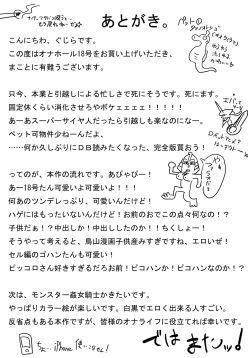 あとがき。
こんにちわ、ぐじらです。
この度はオナホール18号をお買い上げいただき、
まことに有難うございます。
只今、本業と引越しによる忙しさで死にそうです。死にます。
固定休くらい消化させろやボケェェェェ！！！！！
あーあスーパーサイヤ人だったら引越しも楽なのになー。
ペット可物件少ねーんだよ、
……何か久しぶりにＤＢ読みたくなった、完全版買おう！
ってのが、本作の流れです。あびゃびー！
あー18号たん可愛いよ可愛いよ！！！
何あのツンデレっぷり、可愛いんだけど！
ハゲにはもったいないんだけど！お前のおでこの点々何なの！？
子供だぁ！？中出しか！中出ししたのか！！ちくしょー！
そうやって考えると、鳥山漫画子供産みすぎですね、エロいぜ！
セル編のゴハンたんも可愛い！
ピッコロさん好きすぎるだろお前！ピコハンか！ピコハンなのか！？
次は、モンスター姦女騎士かきたいです。
やっぱりカラー絵が楽しいです。白黒でエロく出来る人すごい。
反省点もある本作ですが、皆様のオナライフに役立てれば幸いです。
ではまたッ！